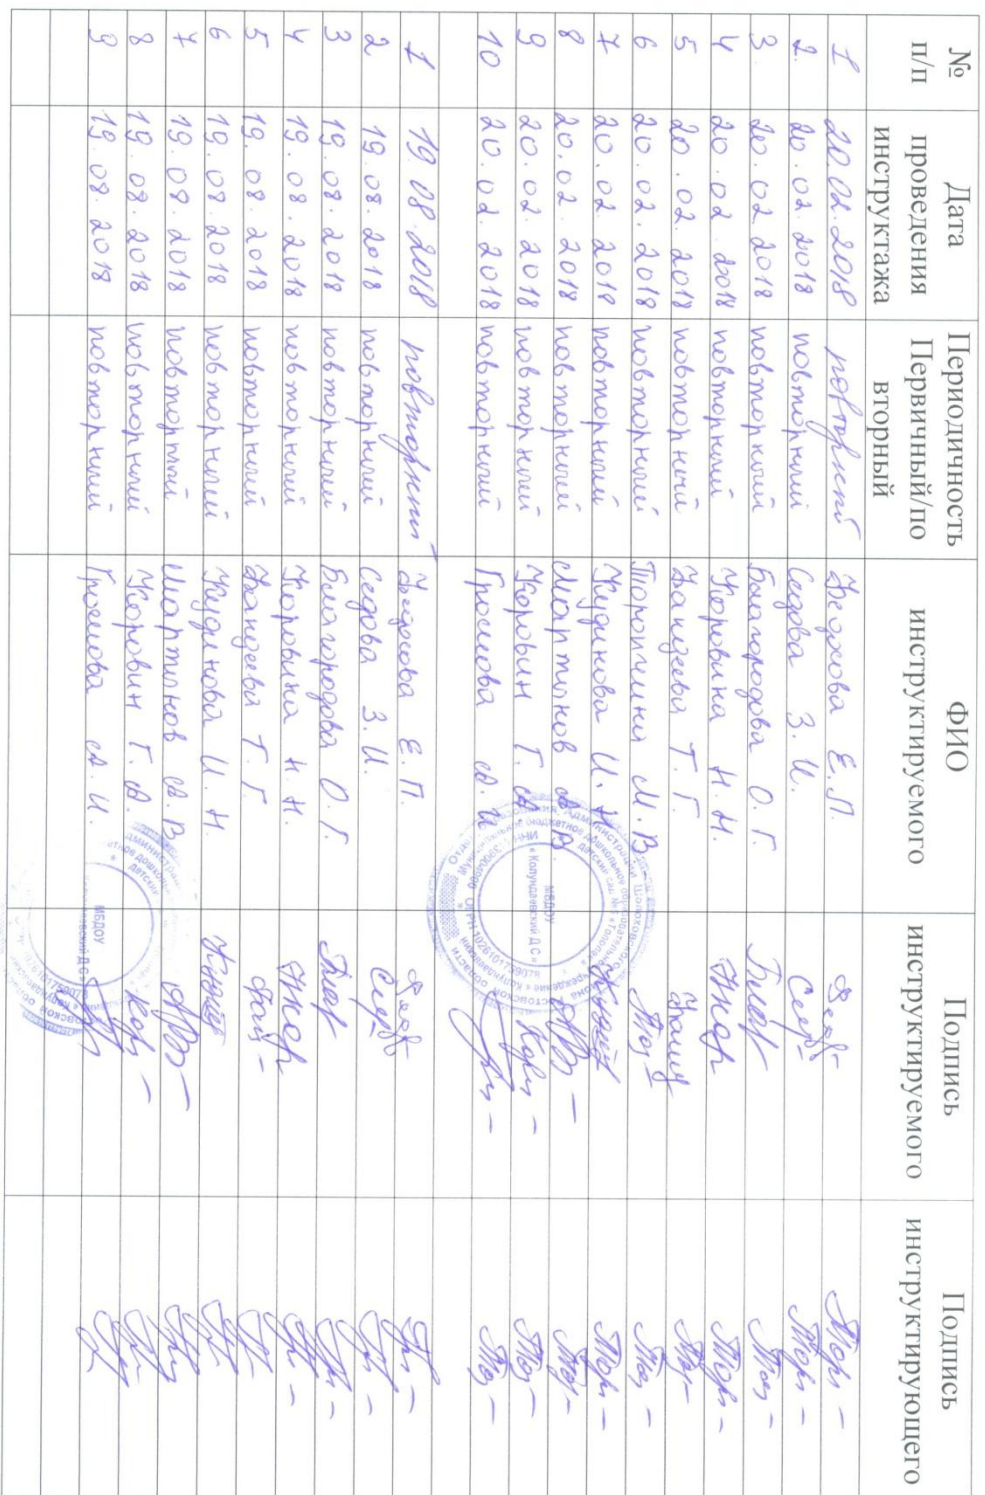 № п/п Дата проведения инструктажа Периодичность Первичный/по вторный ФИО инструктируемого Подпись инструктируемого Подпись инструктирующего
1 20.02.2018 повторный Федосова Е.П.
2. 20.02.2018 повторный Седова З. И.
3. 20.02.2018 повторный Благородова О. Г.
4 20.02.2018 повторный Коровина Н. Н.
5 20.02.2018 повторный Т. Г.
6 20.02.2018 повторный М. В.
7 20.02.2018 повторный Кудинова И. Н.
8 20.02.2018 повторный Мартынов А. В.
9 20.02.2018 повторный Коровин Г. А.
10 20.02.2018 повторный Громова А. И.
1 19.08.2018 повторный Федосова Е. П.
2 19.08.2018 повторный Седова З. И.
3 19.08.2018 повторный Благородова О. Г.
4 19.08.2018 повторный Коровина Н. Н.
5 19.08.2018 повторный Т. Г.
6 19.08.2018 повторный Кудинова И. Н.
7 19.08.2018 повторный Мартынов А. В.
8 19.08.2018 повторный Коровин Г. А.
9 19.08.2018 повторный Громова А. И.
МБДОУ
«Колундаевский Д С»
МБДОУ